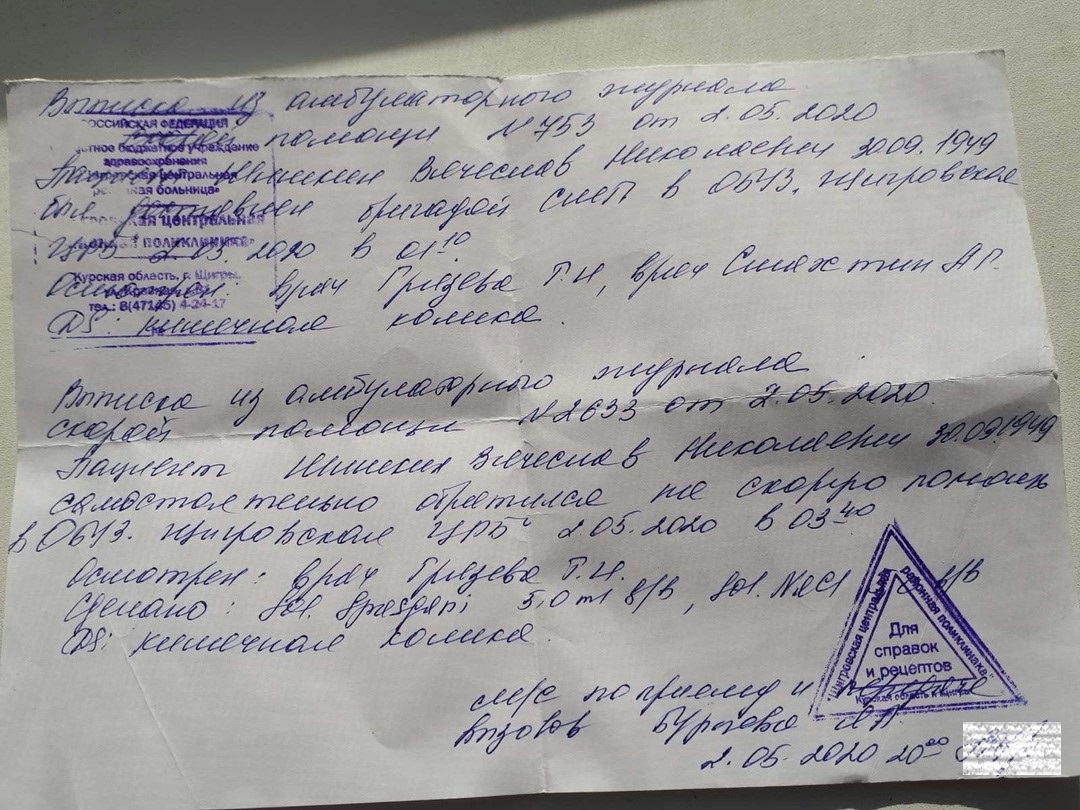 Выписка из амбулаторного журнала
скорой помощи N 753 от 2.05.2020
Вячеслав Николаевич 30.09.1949
был доставлен бригадой СМП в ОБУЗ. Щигровская
ЦРБ 2.05.2020 в 01 10
Осмотрен: врач Грязева Г.Н, врач А.Г.
DS: кишечная колика.
РОССИЙСКАЯ ФЕДЕРАЦИЯ
бюджетное учреждение
здравоохранения
центральная
районная больница»
центральная
поликлиника"
Курская область, г. Щигры,
тел.: 8(47145) 4-24-17
Выписка из амбулаторного журнала
скорой помощи N2633 от 2.05.2020.
Пациент Вячеслав Николаевич 30.09.1949
самостоятельно обратился на скорую помощь
в ОБУЗ. Щигровская ЦРБ 2.05.2020 в 03 40
Осмотрен: врач Грязева Г.Н.
Сделано: Sol. 5,0 в/в, Sol. NaCl в/в
DS: кишечная колика.
м/с по приему и передаче
вызовов
2.05.2020 20 00
"Щигровская центральная районная поликлиника"
Для
справок
и рецептов
Курская область г. Щигры